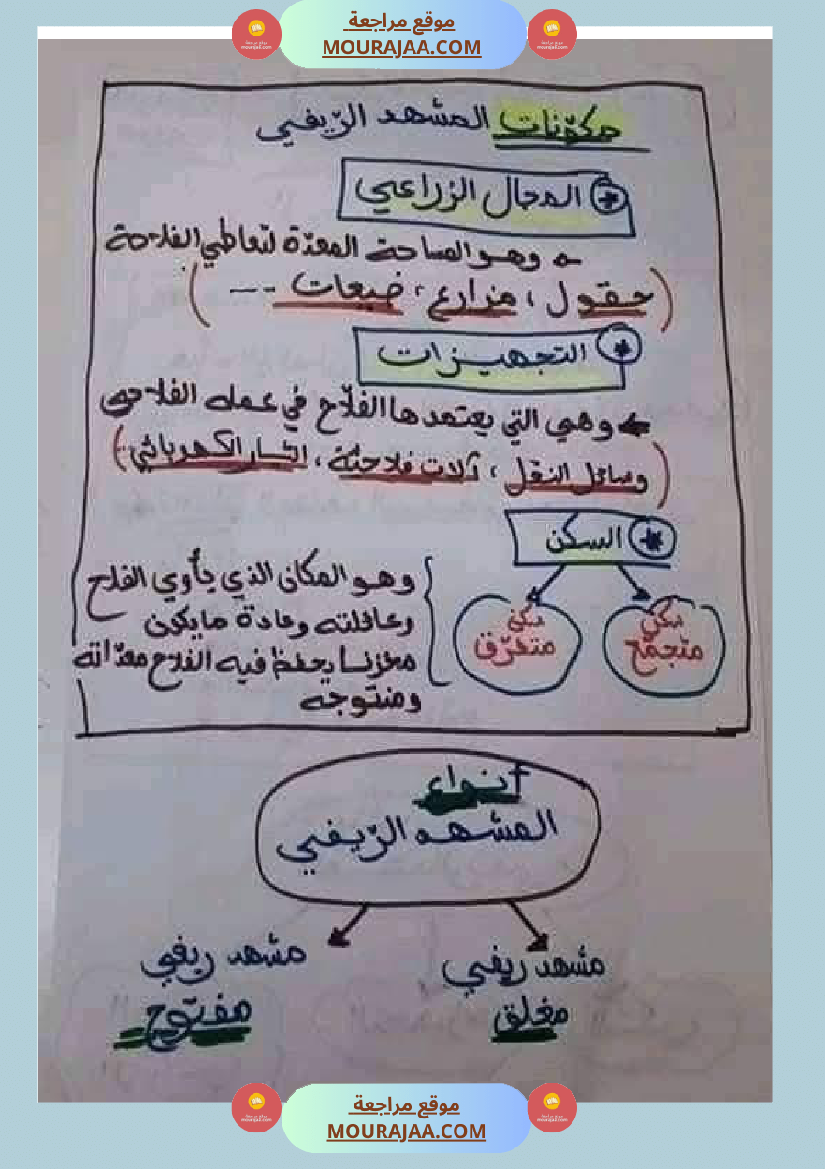 موقع مراجعة
MOURAJAA.COM
مكوّنات المشهد الرّيفي
المجال الزراعي
وهو المساحة المعدّة لتعاطي الفلاحة
(حقول، مزارع، ضيعات ---)
* التجهيزات
وهي التي يعتمدها الفلاّح في عمله الفلاحي
(وسائل النقل، آلات فلاحيّة، التيار الكهربائي)
* السكن
سكن متجمّع
سكن متفرّق
وهو المكان الذي يأوي الفلاح
وعائلته وعادة ما يكون
مخزنا يحفظ فيه الفلاح معدّاته
ومنتوجه
أنواع
المشهد الرّيفي
مشهد ريفي
مغلق
مشهد ريفي
مفتوح
موقع مراجعة
MOURAJAA.COM